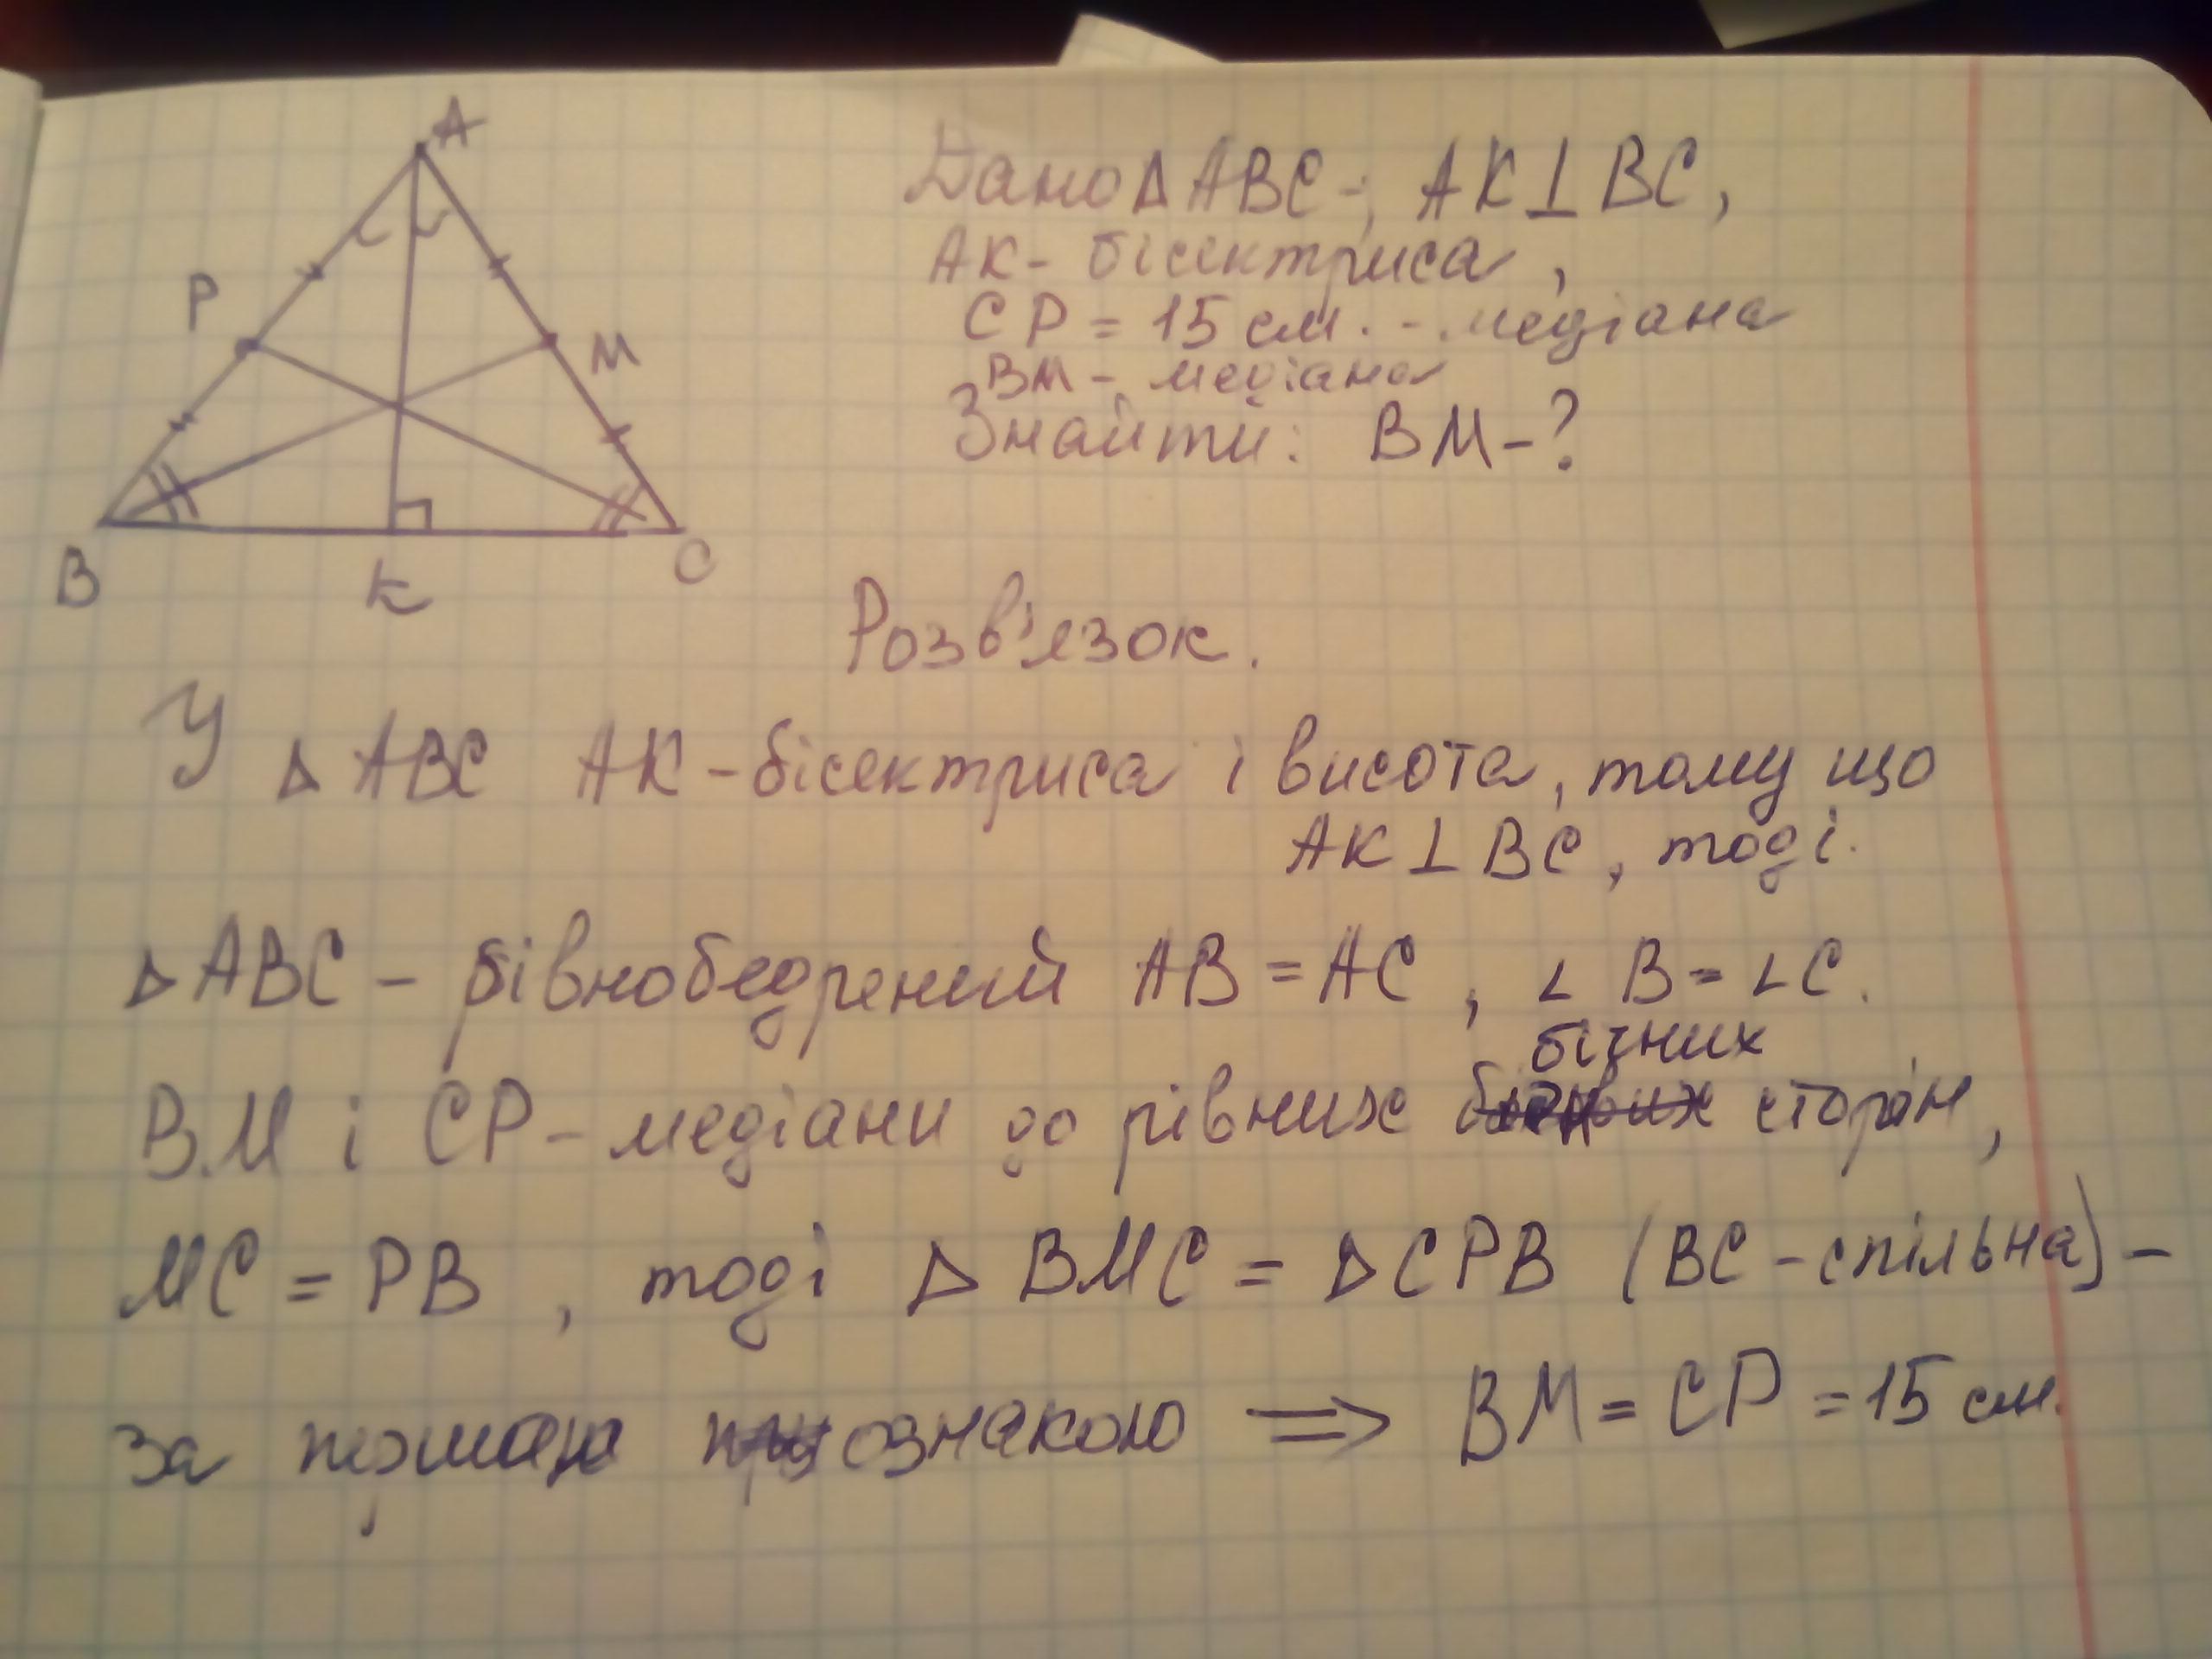 A
P
M
B
K
C
Дано ΔABC -; AK⊥BC,
AK - бісектриса,
CP = 15 см. - медіана
BM - медіана
Знайти: BM - ?
Розв'язок.
У ΔABC AK - бісектриса і висота, тому що
AK⊥BC, тоді.
ΔABC - рівнобедрений AB = AC, ∠B = ∠C.
бічних
BM і CP - медіани до рівних сторін,
MC = PB, тоді ΔBMC = ΔCPB (BC - спільна) -
за першою ознакою ⟹ BM = CP = 15 см.